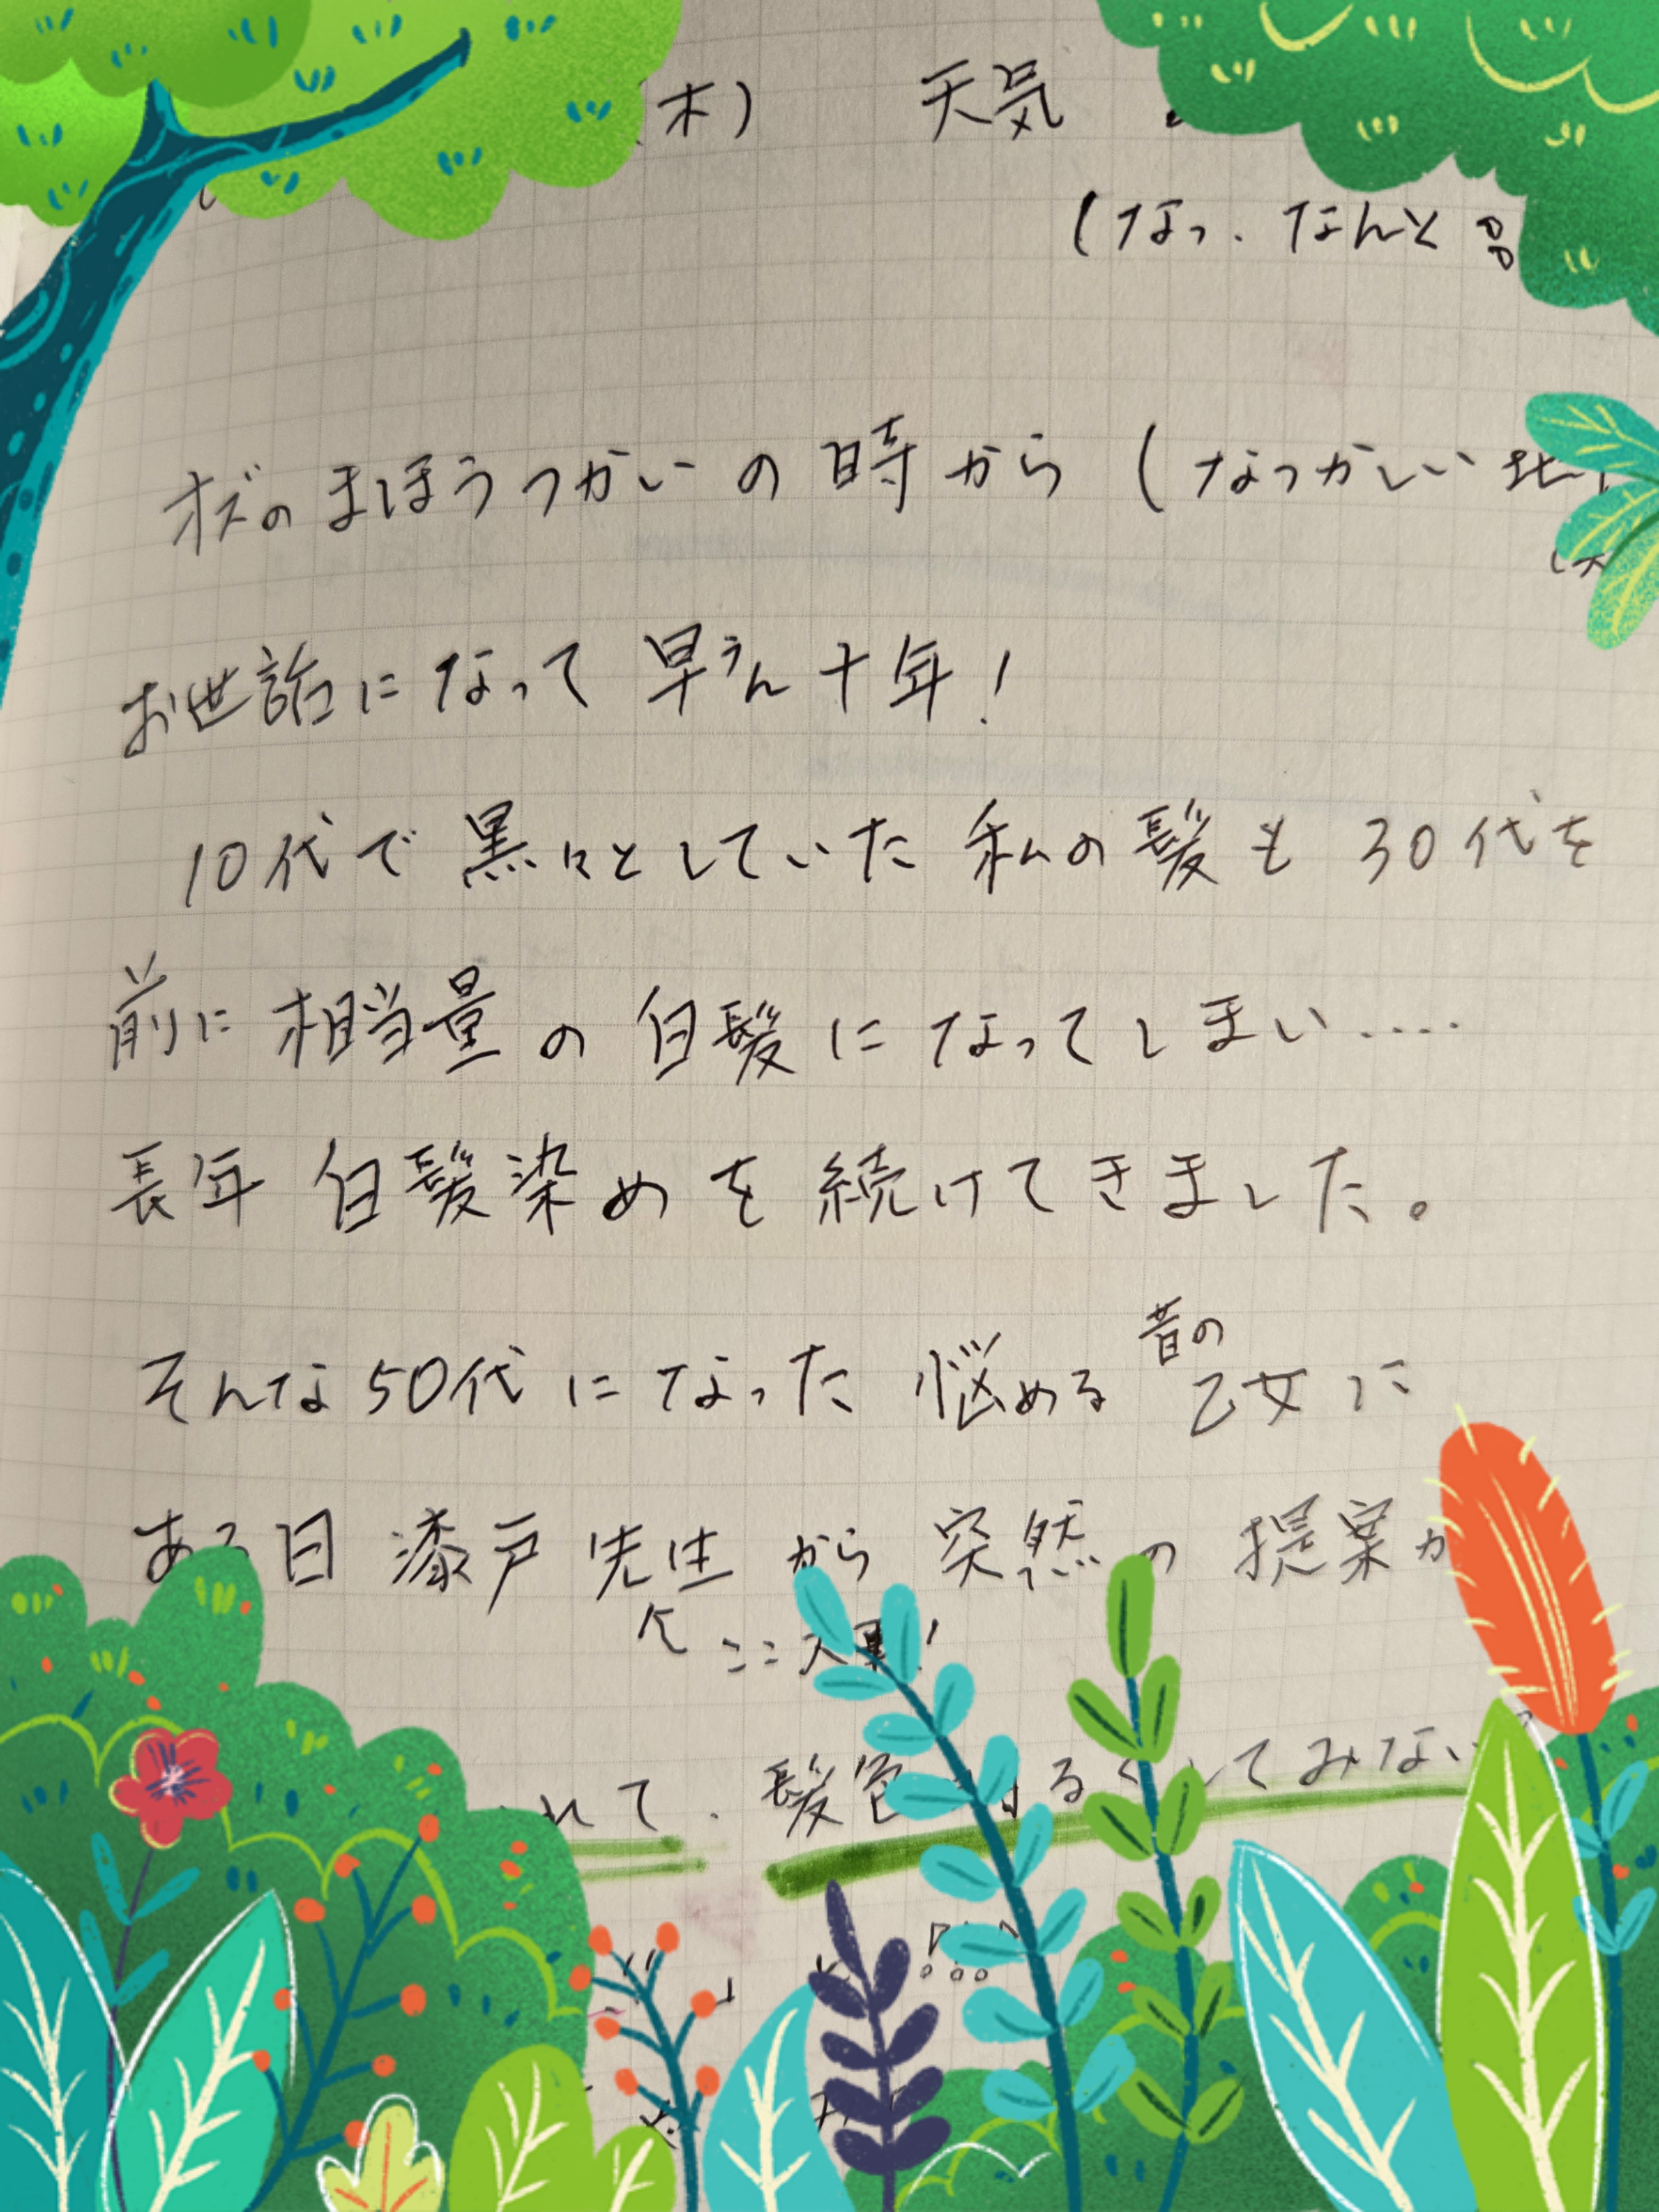 (木) 天気
(なっ. なんと
オズのまほうつかいの時から (なつかしい
お世話になって早うん十年!
10代で黒々としていた私の髪も30代を
前に相当量の白髪になってしまい....
長年白髪染めを続けてきました。
そんな50代になった悩める昔の乙女に
ある日漆戸先生から突然の提案
ここ
れて. 髪色 るく してみない